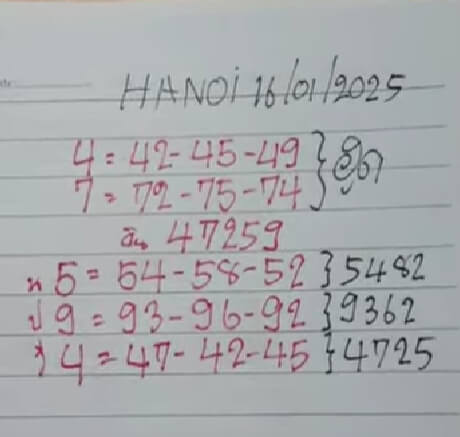 HANOI 16/01/2025
4 = 42-45-49 }
7 = 72-75-74 }
47259
5 = 54-58-52 } 5482
9 = 93-96-92 } 9362
4 = 47-42-45 } 4725